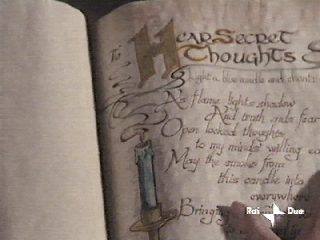 To
Hear Secret
Thoughts
Light a blue candle and chant:
As flame lights shadow
And truth ends fear
Open locked thoughts
to my mind's willing ea
May the smoke from
this candle into
everywhere
Bringing
Rai Due